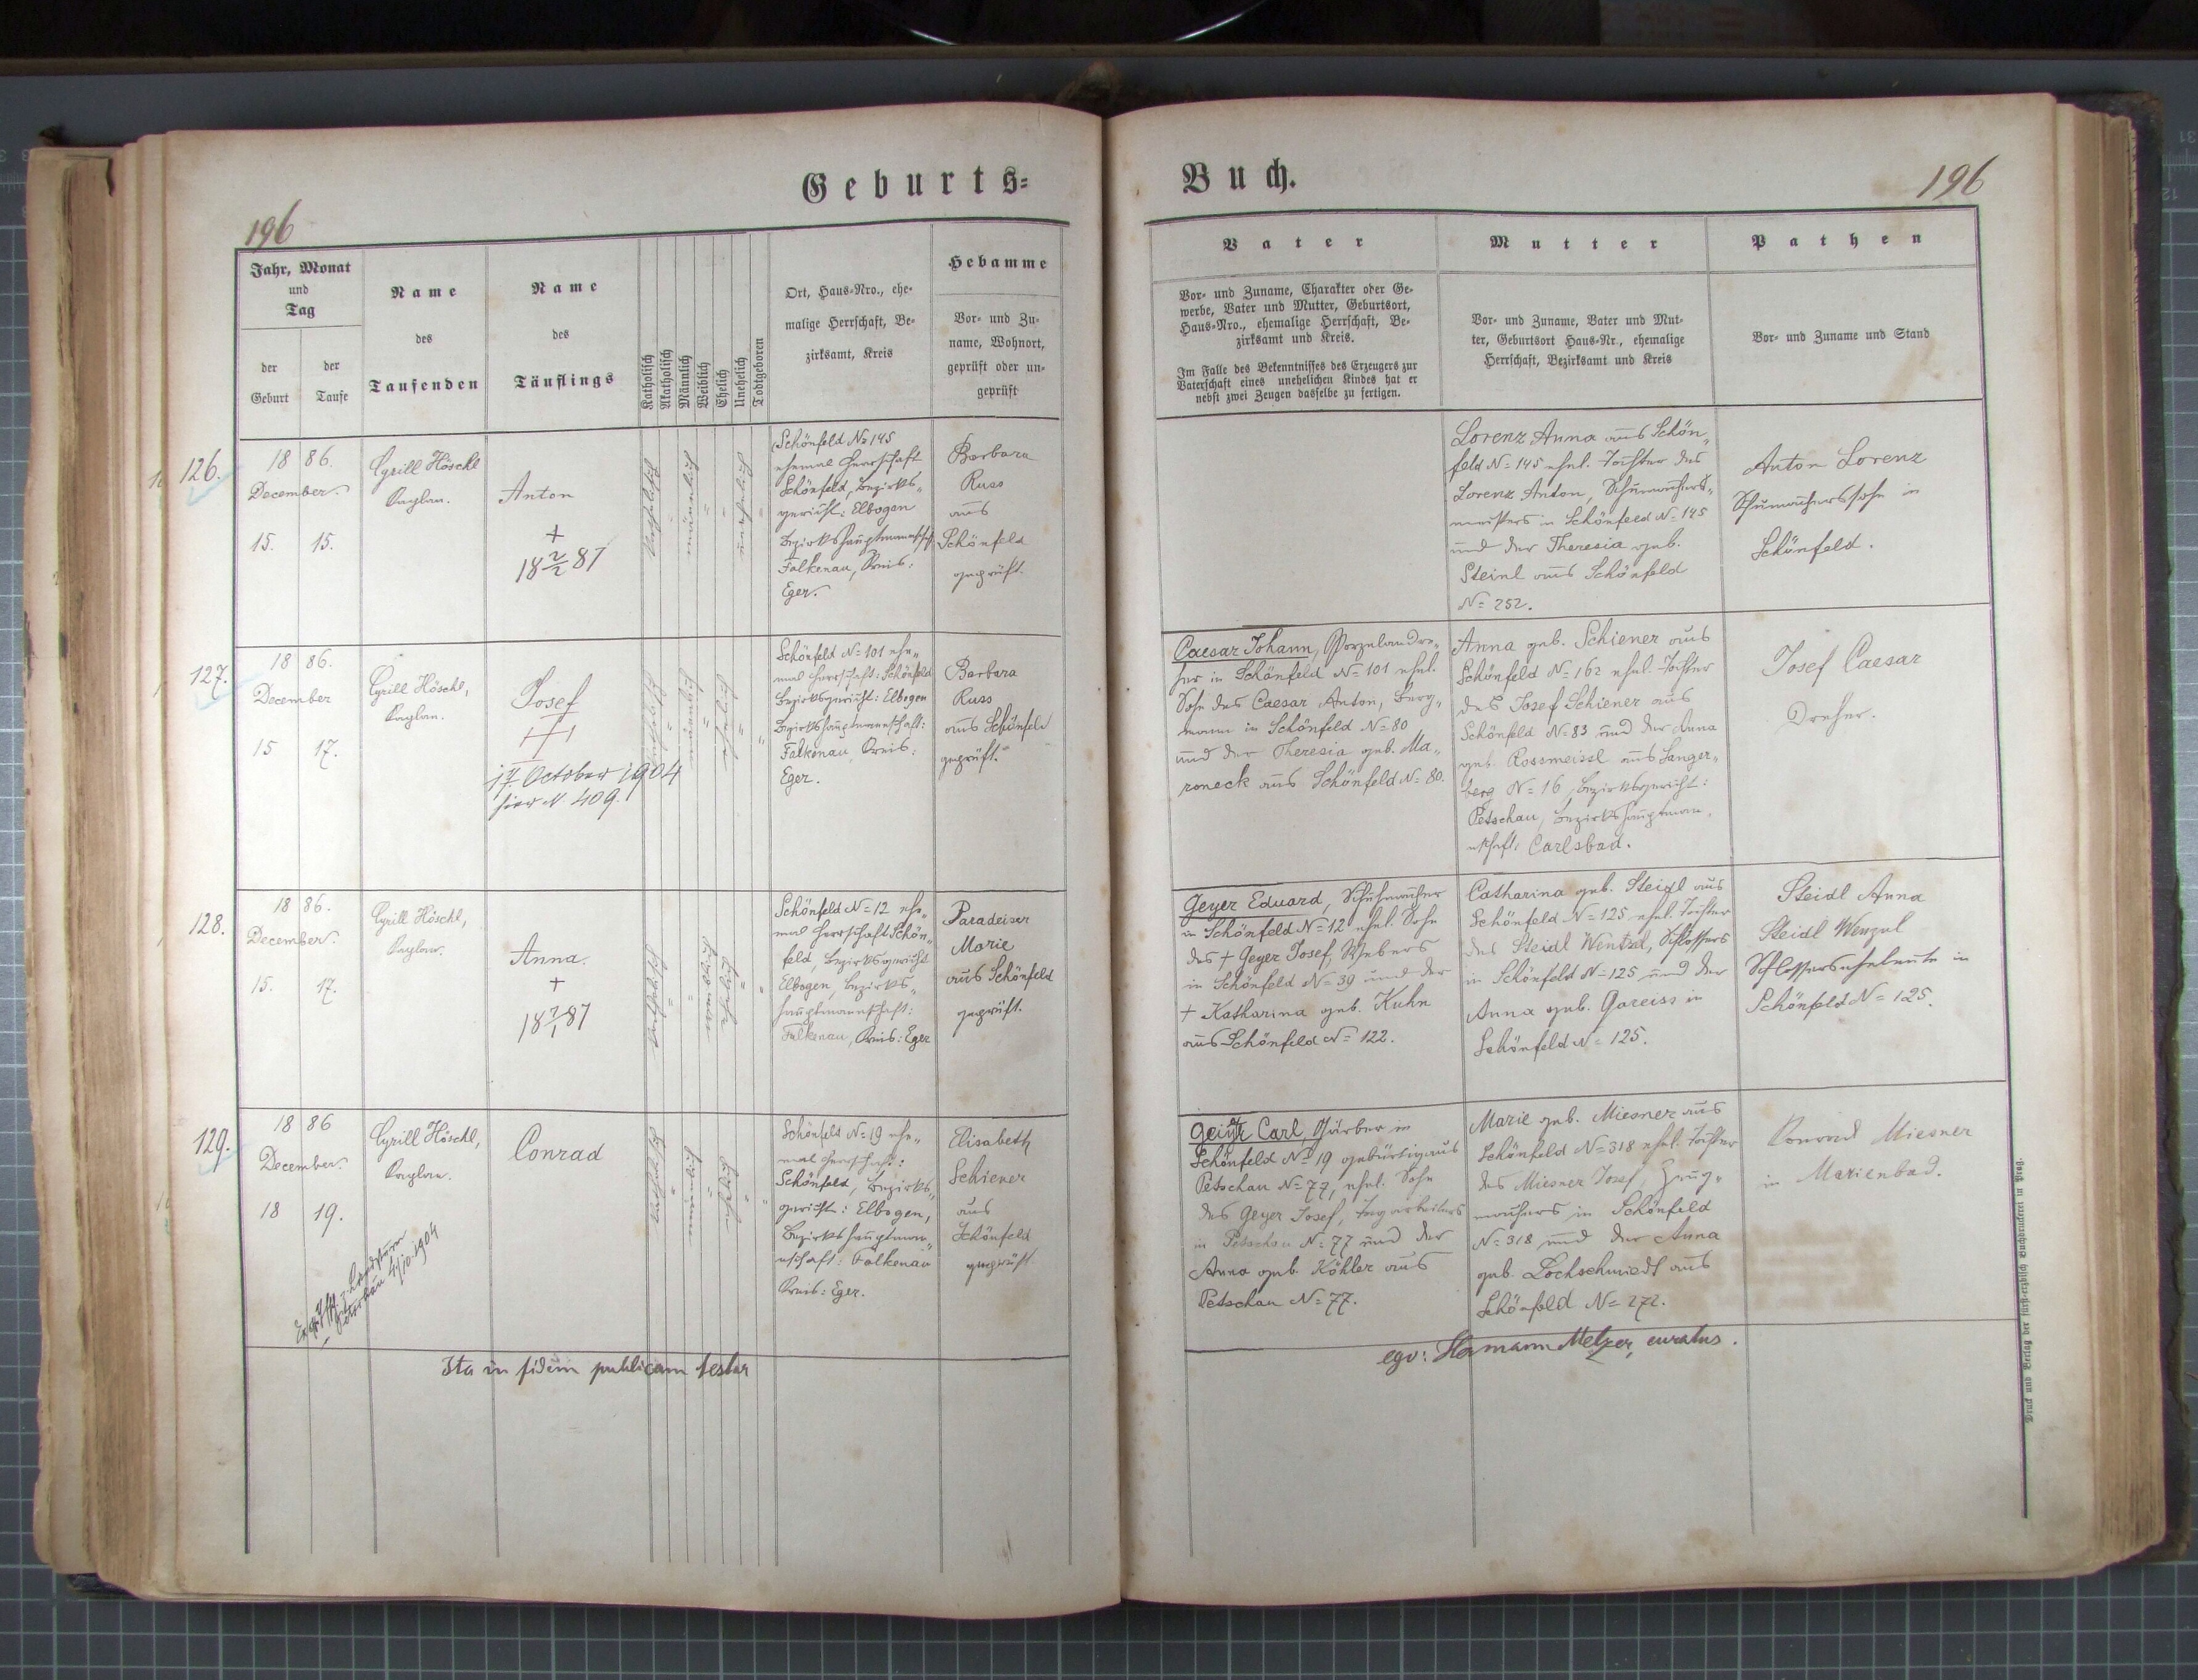 Geburts=
Buch.
196
196
Jahr, Monat
und
Tag
der
Geburt
der
Taufe
Name
des
Taufenden
Name
des
Täuflings
Katholisch
Akatholisch
Männlich
Weiblich
Ehelich
Unehelich
Todtgeboren
Ort, Haus-Nro., ehe-
malige Herrschaft, Be-
zirksamt, Kreis
Hebamme
Vor- und Zu-
name, Wohnort,
geprüft oder un-
geprüft
Vater
Vor- und Zuname, Charakter oder Ge-
werbe, Vater und Mutter, Geburtsort,
Haus-Nro., ehemalige Herrschaft, Be-
zirksamt und Kreis.
Im Falle des Bekenntnisses des Erzeugers zur
Vaterschaft eines unehelichen Kindes hat er
nebst zwei Zeugen dasselbe zu fertigen.
Mutter
Vor- und Zuname, Vater und Mut-
ter, Geburtsort Haus-Nr., ehemalige
Herrschaft, Bezirksamt und Kreis
Pathen
Vor- und Zuname und Stand
126.
18 86.
December.
15. 15.
Cyrill Höschl
Kaplan.
Anton
+
18 2/2 87
katholisch
männlich
unehelich
Schönfeld No 145
ehemal Herrschaft
Schönfeld, Bezirks„
gericht: Elbogen
Bezirkshauptmannschft
Falkenau, Kreis:
Eger.
Barbara
Russ
aus
Schönfeld
geprüft.
Lorenz Anna aus Schön„
feld No 145 ehel. Tochter des
Lorenz Anton, Schumachers„
meisters in Schönfeld No 145
und der Theresia geb.
Steinl aus Schönfeld
No 252.
Anton Lorenz
Schumacherssohn in
Schönfeld.
127.
18 86.
December
15 17.
Cyrill Höschl,
Kaplan.
Josef
17. October 1904
hier N. 409.
katholisch
männlich
ehelich
Schönfeld No 101 ehe„
mal Herrschaft: Schönfeld
Bezirksgericht: Elbogen
Bezirkshauptmannschaft:
Falkenau, Kreis:
Eger.
Barbara
Russ
aus Schönfeld
geprüft.
Caesar Johann, Porzelandre„
her in Schönfeld No 101 ehel.
Sohn des Caesar Anton, Berg„
mann in Schönfeld No 80
und der Theresia geb. Ma„
roneck aus Schönfeld No 80.
Anna geb. Schiener aus
Schönfeld No 162 ehel. Tochter
des Josef Schiener aus
Schönfeld No 83 und der Anna
geb. Rossmeissl aus Sanger„
berg No 16, Bezirksgericht:
Petschau, Bezirkshauptman„
schaft: Carlsbad.
Josef Caesar
Dreher.
128.
18 86.
December.
15. 17.
Cyrill Höschl,
Kaplan.
Anna.
+
18 7/1 87
katholisch
weiblich
ehelich
Schönfeld No 12 ehe„
mal Herrschaft Schön„
feld, Bezirksgericht
Elbogen, Bezirks„
hauptmannschaft:
Falkenau, Kreis: Eger
Paradeiser
Marie
aus Schönfeld
geprüft.
Geyer Eduard, Schuhmacher
in Schönfeld No 12 ehel. Sohn
des + Geyer Josef, Webers
in Schönfeld No 39 und der
+ Katharina geb. Kuhn
aus Schönfeld No 122.
Catharina geb. Steidl aus
Schönfeld No 125 ehel. Tochter
des Steidl Wentzl, Schlossers
in Schönfeld No 125 und der
Anna geb. Gareiss in
Schönfeld No 125.
Steidl Anna
Steidl Wenzel
Schlosserseheleute in
Schönfeld No 125.
129.
18 86
December.
18 19.
Cyrill Höschl,
Kaplan.
Conrad
katholisch
männlich
ehelich
4/10 1904
Schönfeld No 19 ehe„
mal Herrschaft:
Schönfeld, Bezirks„
gericht: Elbogen,
Bezirkshauptman„
nschaft: Falkenau
Kreis: Eger.
Elisabeth
Schiener
aus
Schönfeld
geprüft
Carl, Färber in
Schönfeld No 19 gebürtig aus
Petschau No 77, ehel. Sohn
des Geyer Josef, Tagarbeiters
in Petschau No 77 und der
Anna geb. Köhler aus
Petschau No 77.
Marie geb. Miesner aus
Schönfeld No 318 ehel. Tochter
des Miesner Josef, Zeug„
machers in Schönfeld
No 318 und der Anna
geb. Lochschmiedt aus
Schönfeld No 272.
Konrad Miesner
in Marienbad.
Ita in fidem publicam testor
ego: Hermann Melzer, curatus.
Druck und Verlag der fürst-erzbisch Buchdruckerei in Prag.